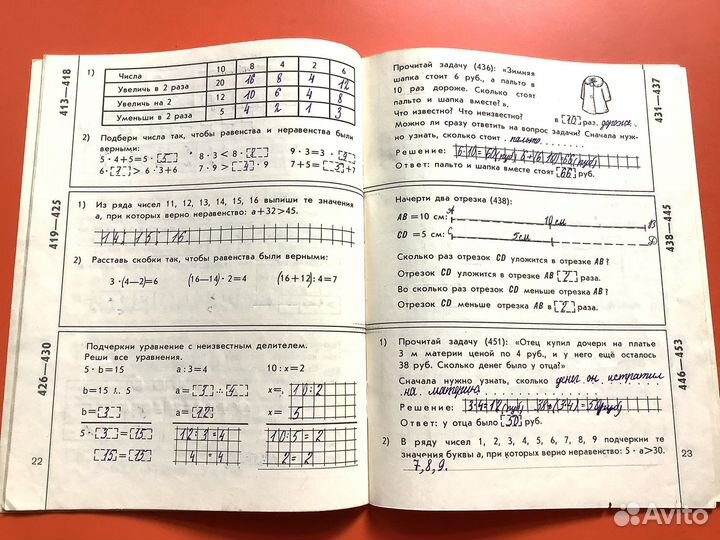 413—418
1)
Числа 10 8 4 2 6
Увеличь в 2 раза 20 16 8 4 12
Увеличь на 2 12 10 6 4 8
Уменьши в 2 раза 5 4 2 1 3
2) Подбери числа так, чтобы равенства и неравенства были
верными:
5 · 4+5=5 · 5 8 · 3 < 8 · 9 · 3=3 · 9
6 · > 6 · 3+6 7 · 9 > · 9 7+5= +7
419—425
1) Из ряда чисел 11, 12, 13, 14, 15, 16 выпиши те значения
а, при которых верно неравенство: а+32>45.
14 15 16
2) Расставь скобки так, чтобы равенства были верными:
3 · (4—2)=6 (16—14) · 2=4 (16+12) : 4=7
426—430
Подчеркни уравнение с неизвестным делителем.
Реши все уравнения.
5 · b=15 а : 3=4 10 : х=2
b=15 : 5 а= 3 · 4 х= 10:2
b= 3 а= 12 х= 5
5 · 3 = 15 12:3=4 10:5=2
15 = 15 4=4 2=2
22
431—437
Прочитай задачу (436): «Зимняя
шапка стоит 6 руб., а пальто в
10 раз дороже. Сколько стоят
пальто и шапка вместе?».
Что известно? Что неизвестно? в 10 раз. дороже.
Можно ли сразу ответить на вопрос задачи? Сначала нуж-
но узнать, сколько стоит пальто
Решение: 6·10=60(руб) 6+(6·10)=66(руб)
Ответ: пальто и шапка вместе стоят 66 руб.
438—445
Начерти два отрезка (438):
АВ=10 см: А 10 см В
CD=5 см: С 5см D
Сколько раз отрезок CD уложится в отрезке АВ?
Отрезок CD уложится в отрезке АВ 2 раза.
Во сколько раз отрезок CD меньше отрезка АВ?
Отрезок CD меньше отрезка АВ в 2 раза.
446—453
1) Прочитай задачу (451): «Отец купил дочери на платье
3 м материи ценой по 4 руб., и у него ещё осталось
38 руб. Сколько денег было у отца?»
Сначала нужно узнать, сколько денег он истратил
на материю
Решение: 3·4=12(руб) 38+(3·4)=50(руб)
Ответ: у отца было 50 руб.
2) В ряду чисел 1, 2, 3, 4, 5, 6, 7, 8, 9 подчеркни те
значения буквы а, при которых верно неравенство: 5 · а>30.
7, 8, 9.
23
Avito